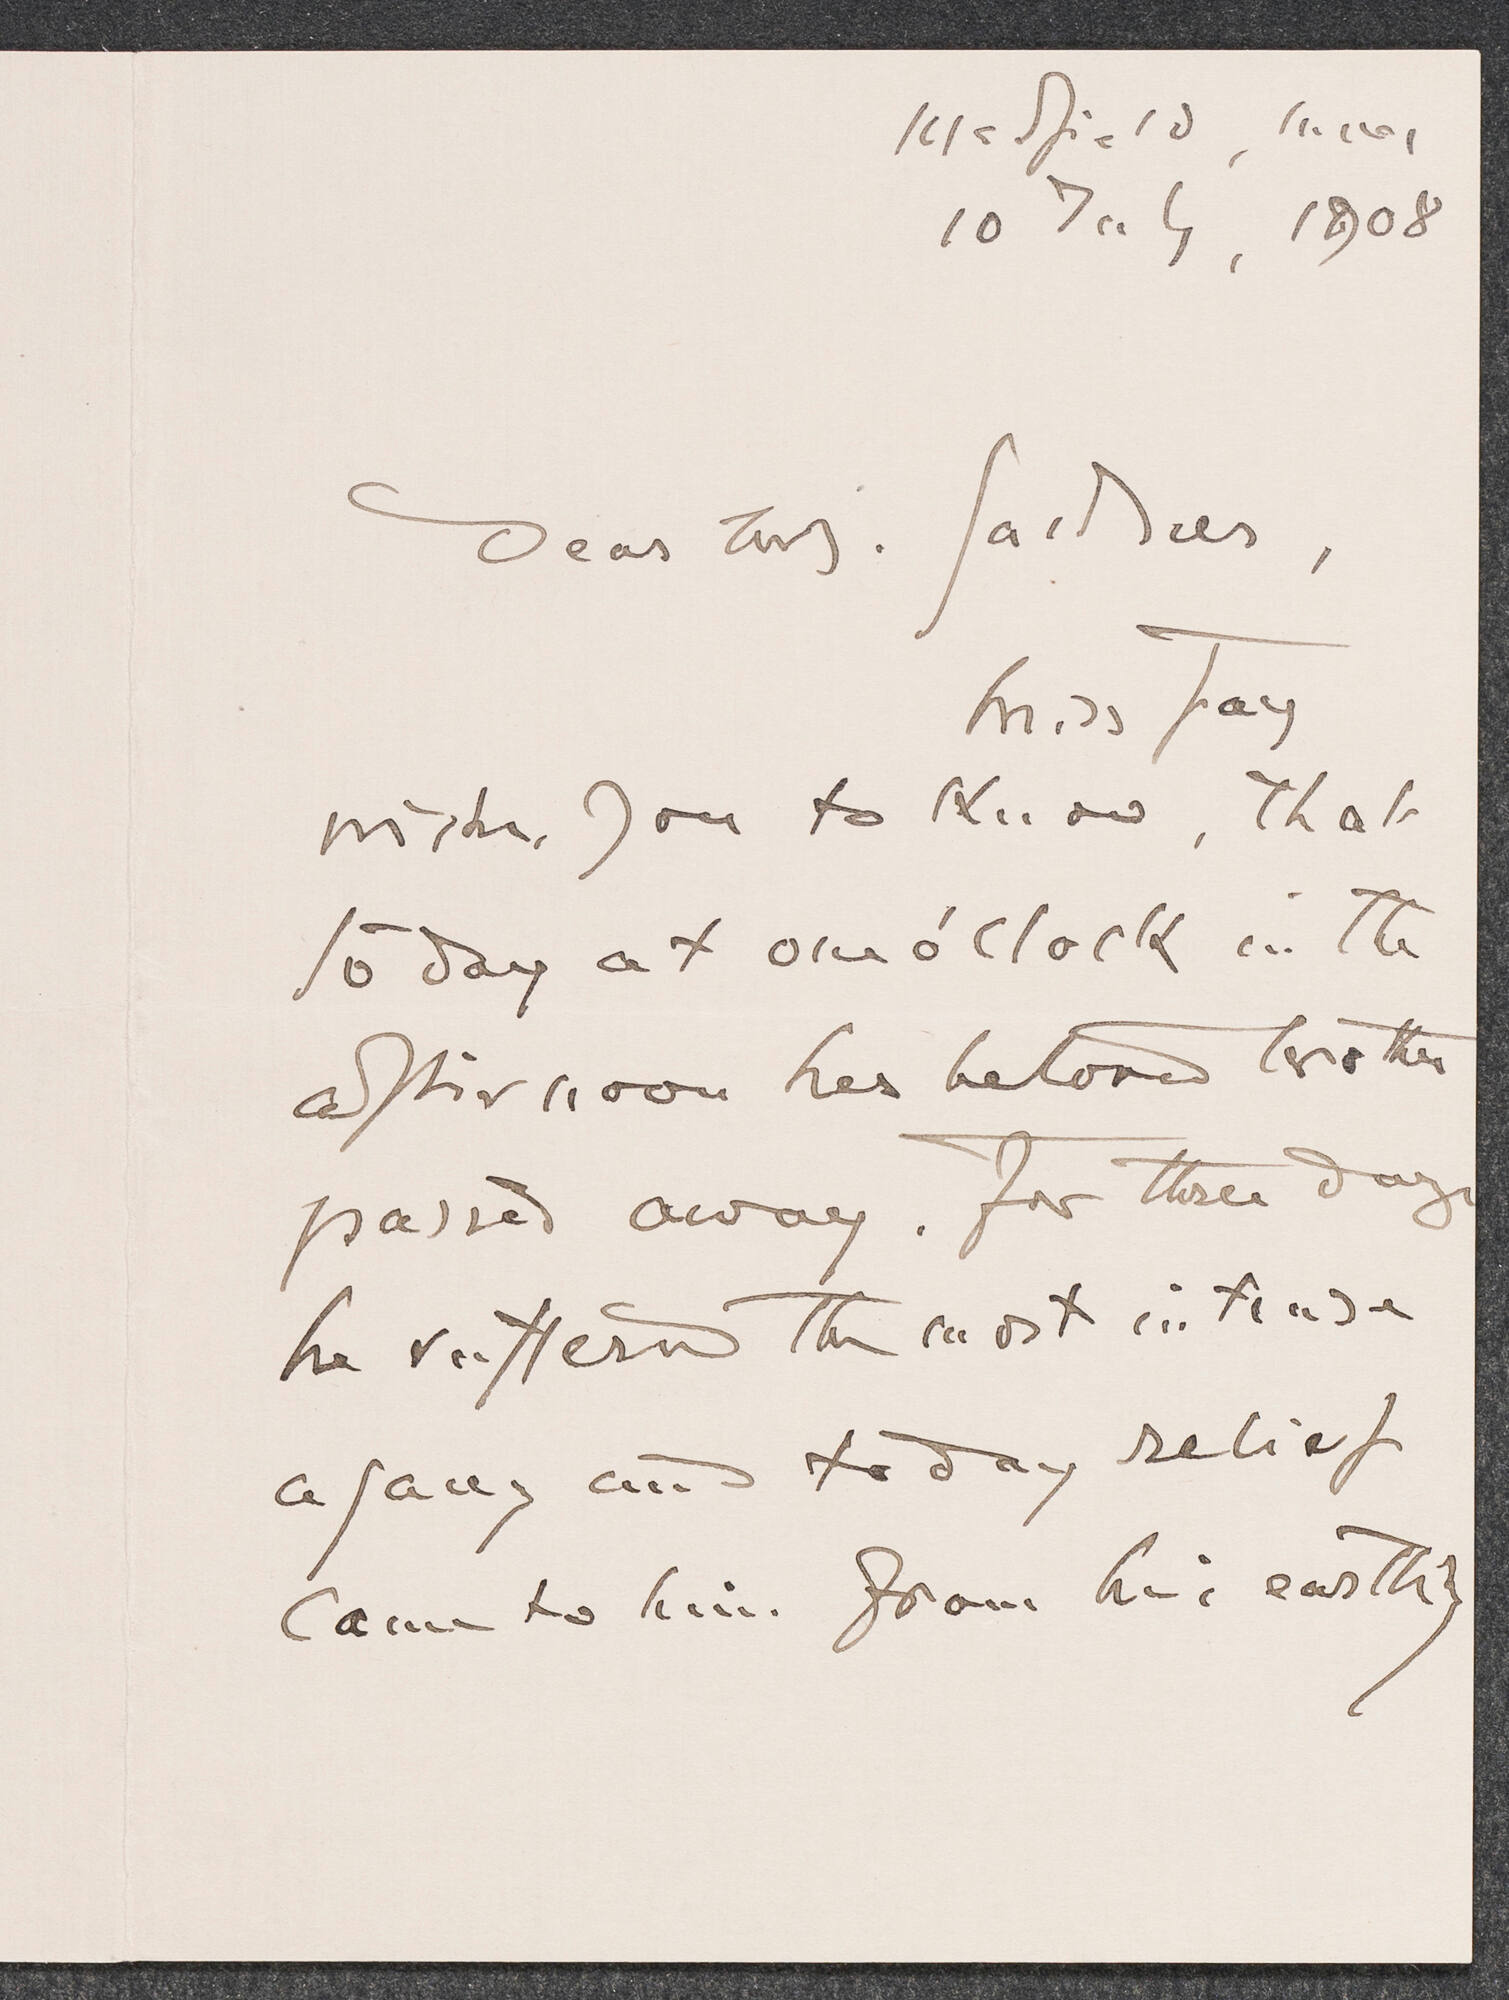 Medfield, Mass
10 July, 1908
Dear Mrs. Gardner,
Miss Fay
wishes you to know, that
to day at one o'clock in the
afternoon her beloved brother
passed away. For three days
he suffered the most intense
agony and to day relief
came to him. From his earthly